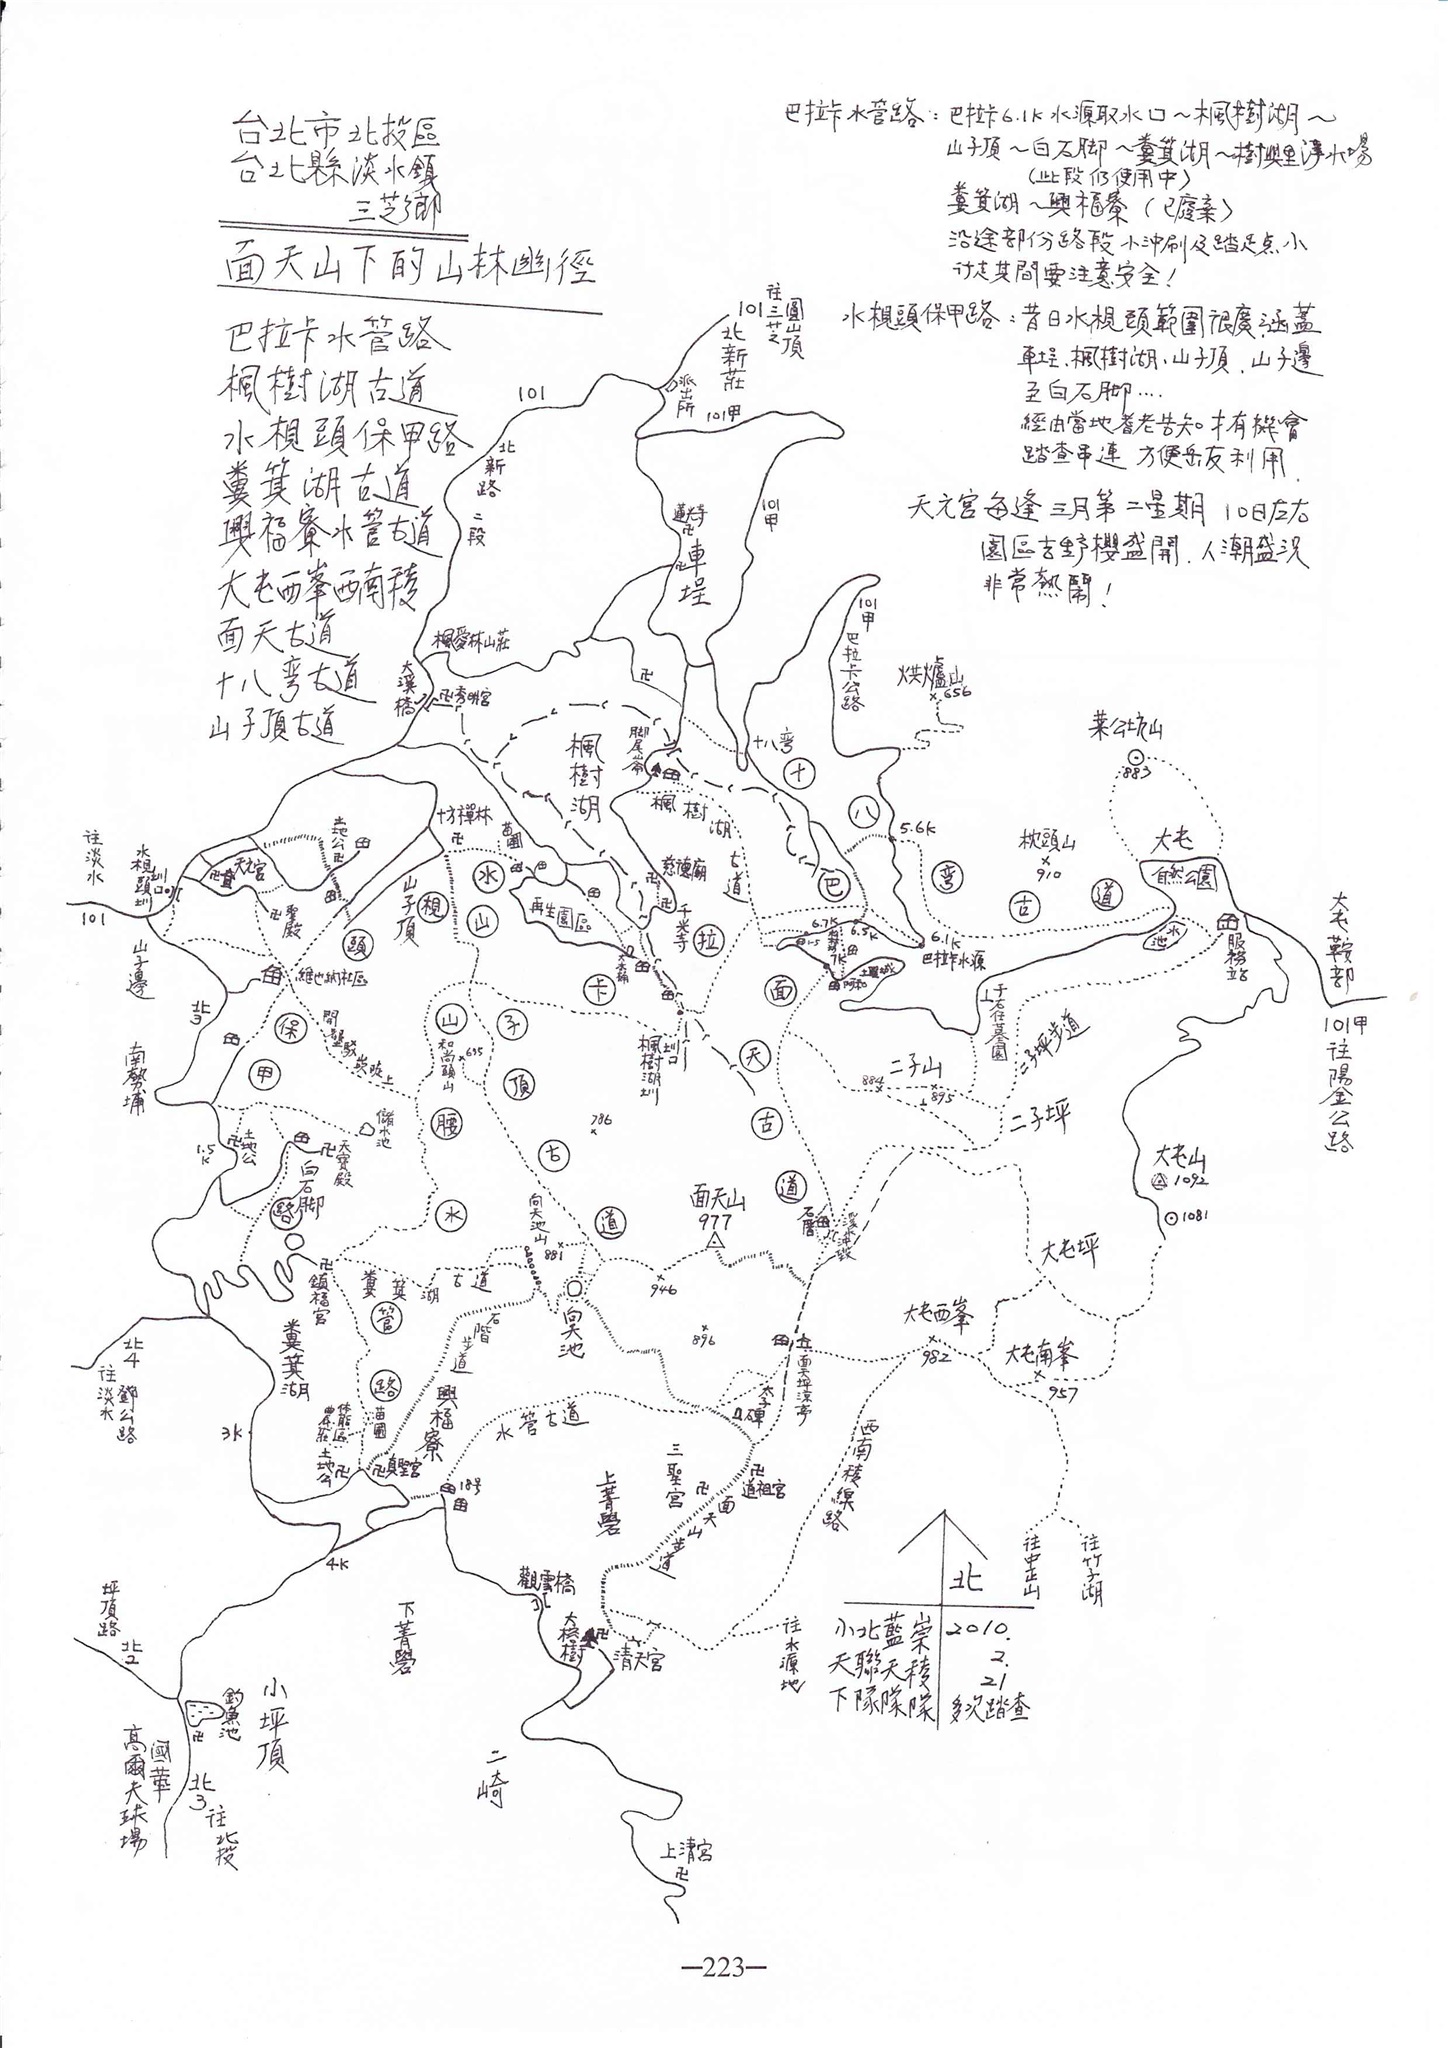 台北市北投區
台北縣淡水鎮
三芝鄉
面天山下的山林幽徑
巴拉卡水管路
楓樹湖古道
水梘頭保甲路
糞箕湖古道
興福寮水管古道
大屯西峯西南稜
面天古道
十八彎古道
山子頂古道
巴拉卡水管路：巴拉卡6.1K水源取水口～楓樹湖～
山子頂～白石脚～糞箕湖～樹興里淨水場
(此段仍使用中)
糞箕湖～興福寮（已廢棄）
沿途部份路段小沖刷及踏足点小
行走其間要注意安全！
水梘頭保甲路：昔日水梘頭範圍很廣涵蓋
車埕、楓樹湖、山子頂、山子邊
至白石脚‥‥
經由當地耆老告知才有機會
踏查串連 方便岳友利用.
天元宮每逢三月第二星期 10日左右
園區吉野櫻盛開.人潮盛況
非常熱鬧！
往三芝
圓山頂
101
北新莊
派出所
101甲
101
北新路二段
101甲
蓮光寺
車埕
101甲
巴拉卡公路
烘爐山
656
菜公坑山
883
楓愛林山莊
大溪橋
秀明宮
楓樹湖
脚尾崙
十八彎
十八彎古道
5.6K
枕頭山
910
大屯
自然公園
水池
服務站
大屯鞍部
101甲
往陽金公路
楓樹湖古道
慈德廟
千光寺
十方禪林
苗圃
再生園區
往淡水
101
水梘頭圳
圳口
天元宮
土地公
聖殿
山子頂
水梘頭保甲路
維也納社區
山子邊
北3
南勢埔
巴拉卡
山腰水管路
6.7K
6.5K
7K
6.1K
巴拉卡水源
面天古道
于右任墓園
二子坪步道
二子山
884
895
二子坪
楓樹湖圳
圳口
和尚頭山
695
山子頂古道
786
儲水池
天寶殿
土地公
白石脚
1.5K
向天池山
881
向天池
面天山
977
946
896
石厝
大屯山
1092
1081
大屯坪
大屯西峯
982
大屯南峯
957
鎮福宮
糞箕湖古道
糞箕湖
石階步道
興福寮
水管古道
面天坪涼亭
太子碑
西南稜線路
苗圃
休閒農莊區
土地公
真聖宮
18号
三聖宮
道祖宮
面天山步道
上菁礐
下菁礐
北4
往淡水
鄧公路
3K
4K
坪頂路
北2
釣魚池
小坪頂
國華
高爾夫球場
北3
往北投
觀雲橋
大榕樹
清天宮
往水源地
往中正山
往竹子湖
二崎
上清宮
北
小北藍崇
天聯天稜
下隊隊隊
2010.
2.
21
多次踏查
—223—